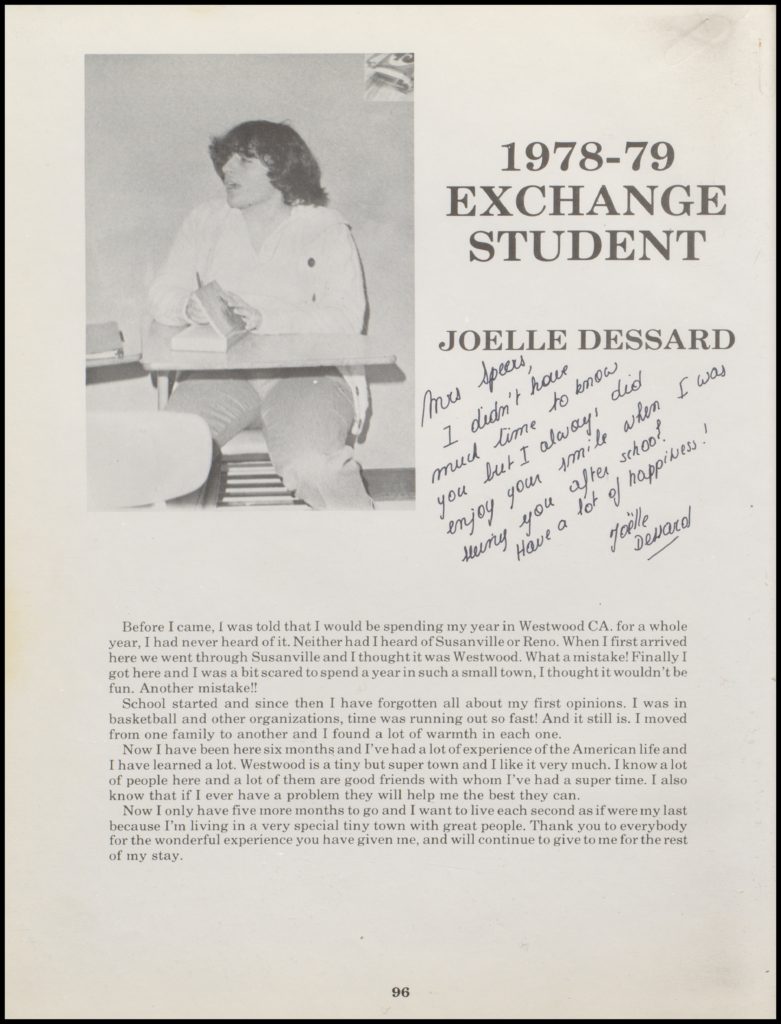 1978-79
EXCHANGE
STUDENT
JOELLE DESSARD
Mrs Speers,
I didn't have
much time to know
you but I always did
enjoy your smile when I was
seeing you after school.
Have a lot of happiness!
Joëlle
Dessard
Before I came, I was told that I would be spending my year in Westwood CA. for a whole
year, I had never heard of it. Neither had I heard of Susanville or Reno. When I first arrived
here we went through Susanville and I thought it was Westwood. What a mistake! Finally I
got here and I was a bit scared to spend a year in such a small town, I thought it wouldn't be
fun. Another mistake!!
School started and since then I have forgotten all about my first opinions. I was in
basketball and other organizations, time was running out so fast! And it still is. I moved
from one family to another and I found a lot of warmth in each one.
Now I have been here six months and I've had a lot of experience of the American life and
I have learned a lot. Westwood is a tiny but super town and I like it very much. I know a lot
of people here and a lot of them are good friends with whom I've had a super time. I also
know that if I ever have a problem they will help me the best they can.
Now I only have five more months to go and I want to live each second as if were my last
because I'm living in a very special tiny town with great people. Thank you to everybody
for the wonderful experience you have given me, and will continue to give to me for the rest
of my stay.
96